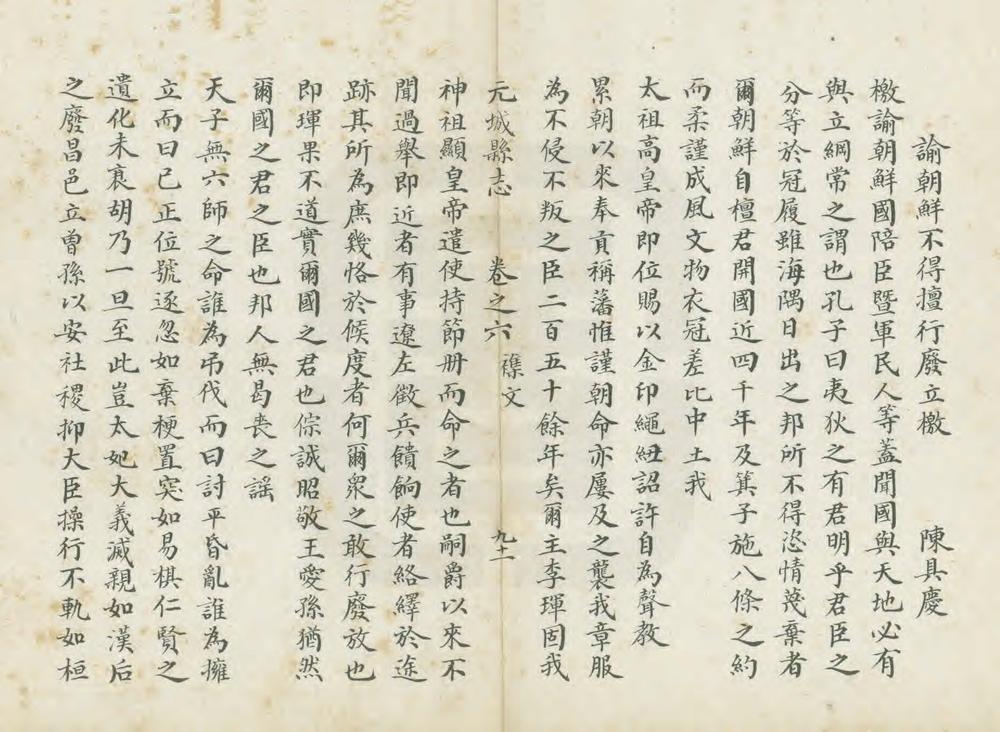 諭朝鮮不得擅行廢立檄　陳具慶
檄諭朝鮮國陪臣暨軍民人等蓋聞國與天地必有
與立綱常之謂也孔子曰夷狄之有君明乎君臣之
分等於冠履雖海隅日出之邦所不得恣情蔑棄者
爾朝鮮自檀君開國近四千年及箕子施八條之約
而柔謹成風文物衣冠差比中土我
太祖高皇帝即位賜以金印繩紐詔許自為聲教
累朝以來奉貢稱藩惟謹朝命亦屢及之襲我章服
為不侵不叛之臣二百五十餘年矣爾主李琿固我
元城縣志　卷之六　襍文　九十一
神祖顯皇帝遣使持節册而命之者也嗣爵以來不
聞過舉即近者有事遼左徵兵饋餉使者絡繹於途
跡其所為庶幾恪於候度者何爾衆之敢行廢放也
即琿果不道實爾國之君也倧誠昭敬王愛孫猶然
爾國之君之臣也邦人無曷喪之謠
天子無六師之命誰為弔伐而曰討平昏亂誰為擁
立而曰已正位號逐忽如棄梗置突如易棋仁賢之
遺化未衰胡乃一旦至此豈太妃大義滅親如漢后
之廢昌邑立曾孫以安社稷抑大臣操行不軌如桓